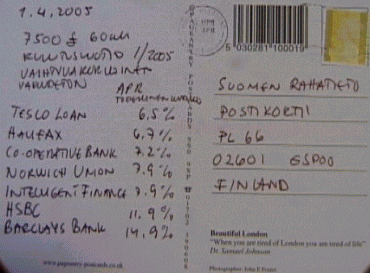 1.4.2005
7500 £ 60 KK
KULUTUSLUOTTO 1/2005
VAIHTUVAKORKOINEN
VAKUUDETON
APR
TESCO LOAN 6,5%
HALIFAX 6,7%
CO-OPERATIVE BANK 7.2%
NORWICH UNION 7.9%
INTELLIGENT FINANCE 7.9%
HSBC 11,9%
BARCLAYS BANK 14,9%
www.papermery-postcards.co.uk
5 030281 100019
SUOMEN RAHATIETO
POSTIKORTTI
PL 66
02601 ESPOO
FINLAND
Beautiful London
"When you are tired of London you are tired of life"
Dr. Samuel Johnson
Photographer: John E Fraser